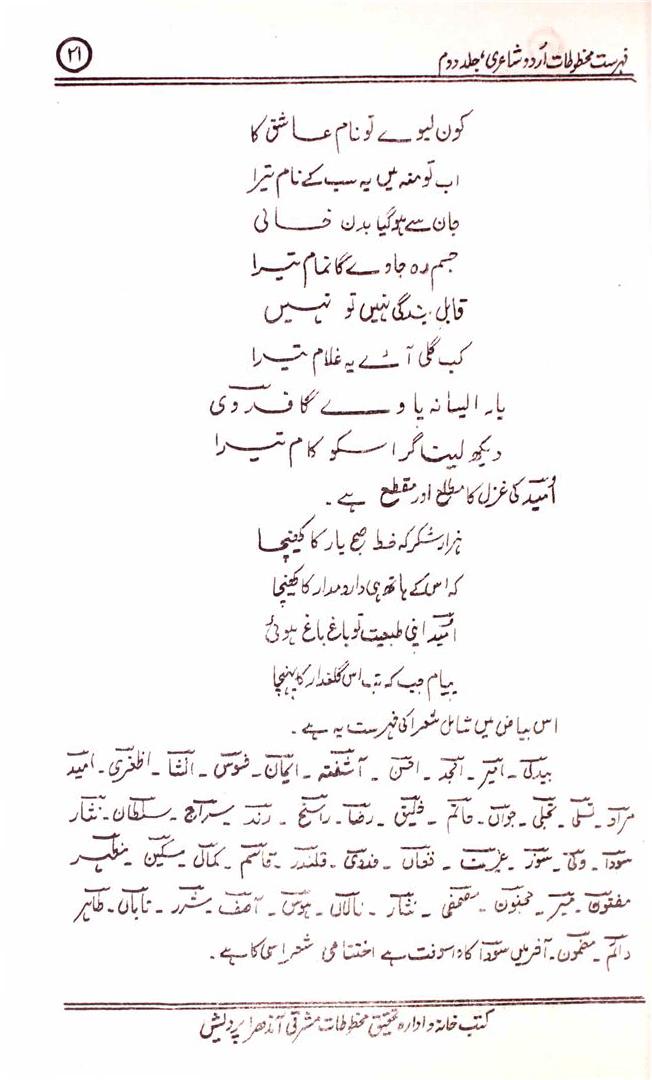 فہرست مخطوطات اُردو شاعری، جلد دوم
۲۱
کون لیوے تو نام عاشق کا
اب تو منہ میں یہ سب کے نام تیرا
جان سے ہو گیا بدن خالی
جسم رہ جاوے گا تمام تیرا
قابل بندگی نہیں تو نہیں
کب گلی آئے یہ غلام تیرا
یار ایسا نہ پاوے گا فدوی
دیکھ لیتا گر اسکو کام تیرا
اُمید کی غزل کا مطلع اور مقطع ہے ۔
ہزار شکر کہ خط صبح یار کا کھینچا
کہ اس کے ہاتھ ہی دارومدار کا کھینچا
امید اپنی طبیعت تو باغ باغ ہوئی
پیام جب کہ اس گلغدار کا پہنچا
اس بیاض میں شامل شعرا کی فہرست یہ ہے ۔
بیدل ۔ امیر ۔ امجد ۔ احسن ۔ آشفتہ ۔ ایمان ۔ فسوس ۔ انشا ۔ اظفری ۔ امید
مراد ۔ تسلی ۔ تجلی ۔ جواں ۔ حاتم ۔ خلیق ۔ رضا ۔ راسخ ۔ رند ۔ سراج ۔ سلطان ۔ نثار
سودا ۔ ولی ۔ سوز ۔ عزت ۔ فغاں ۔ فدوی ۔ قلندر ۔ قاسم ۔ کمال ۔ مسکین ۔ مظہر
مفتون ۔ میر ۔ مجنون ۔ مصحفی ۔ نثار ۔ نالاں ۔ ہوس ۔ آصف ۔ شرر ۔ تاباں ۔ طاہر
دائم ۔ مضمون ۔ آخر میں سودا کا واسوخت ہے اختتامی شعر اسی کا ہے ۔
کتب خانہ و ادارہ تحقیق مخطوطات مشرقی آندھرا پردیش